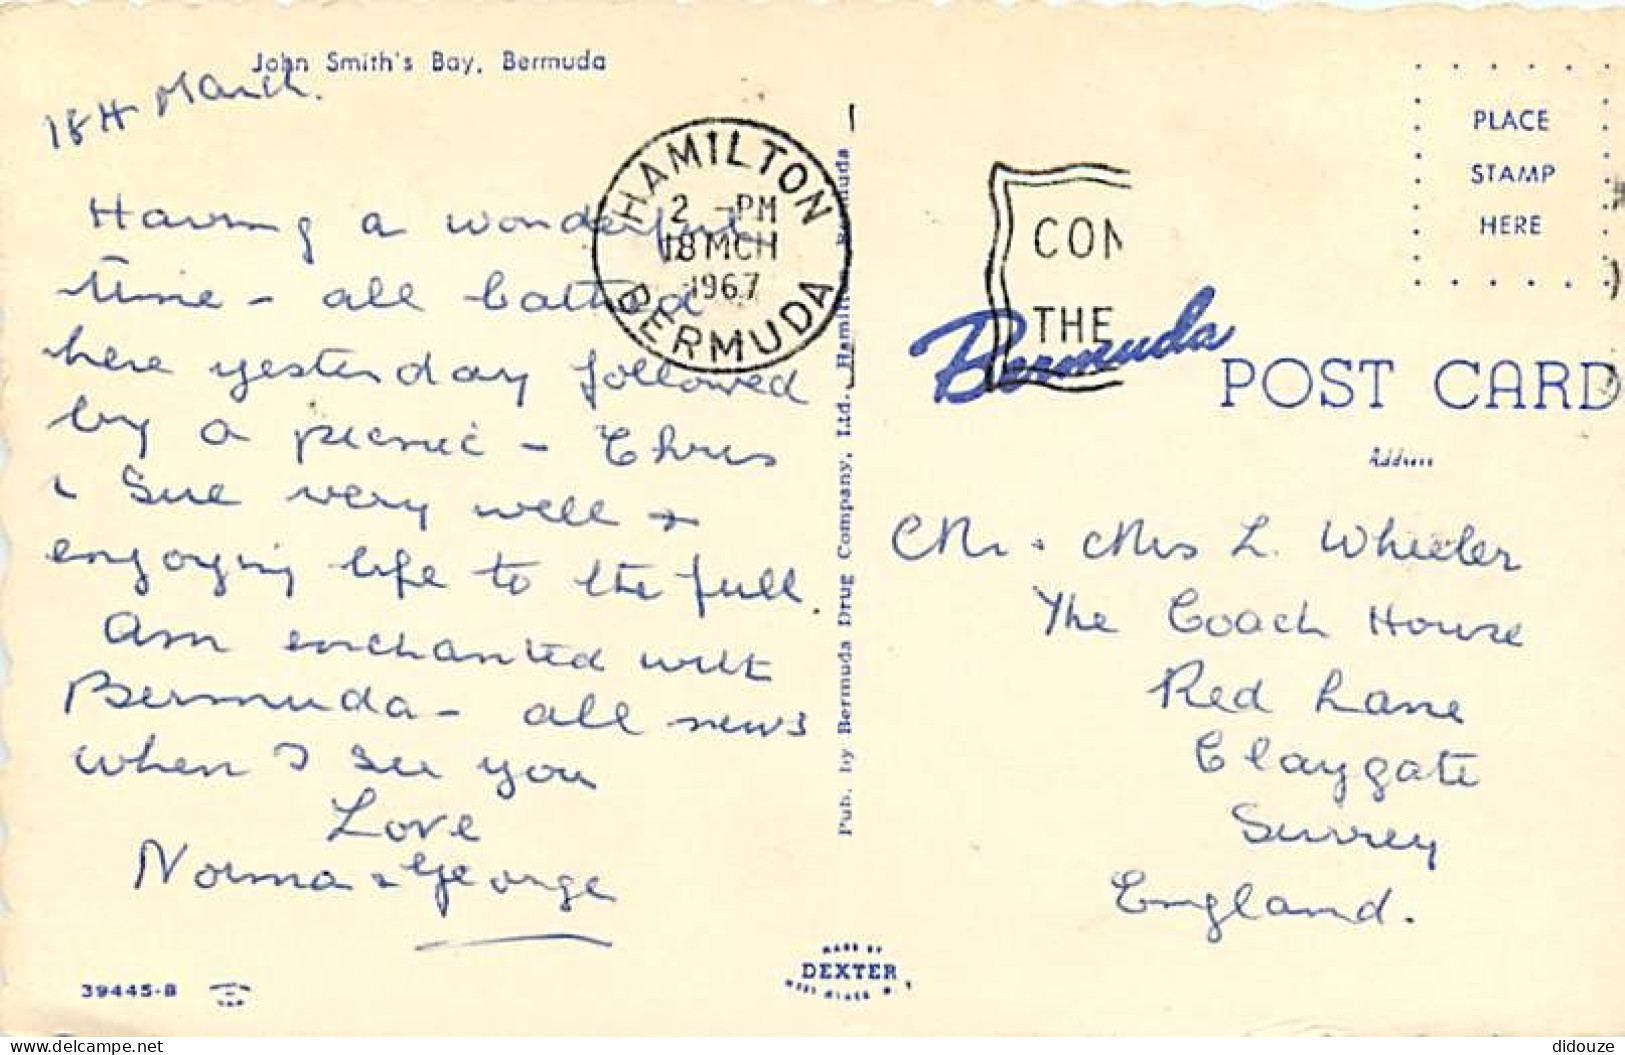 John Smith's Bay, Bermuda
18th March.
Having a wonderful
time - all bathed
here yesterday followed
by a picnic - Chris
& Sue very well &
enjoying life to the full.
Am enchanted with
Bermuda - all news
when I see you
Love
Norma & George
39445-B
HAMILTON
2 - PM
18 MCH
1967
BERMUDA
Pub. by Bermuda Drug Company, Ltd., Hamilton, Bermuda
MADE BY
DEXTER
CON
THE
PLACE
STAMP
HERE
Bermuda POST CARD
Address
Mr. & Mrs L. Wheeler
The Coach House
Red Lane
Claygate
Surrey
England.
delcampe.net
didouze